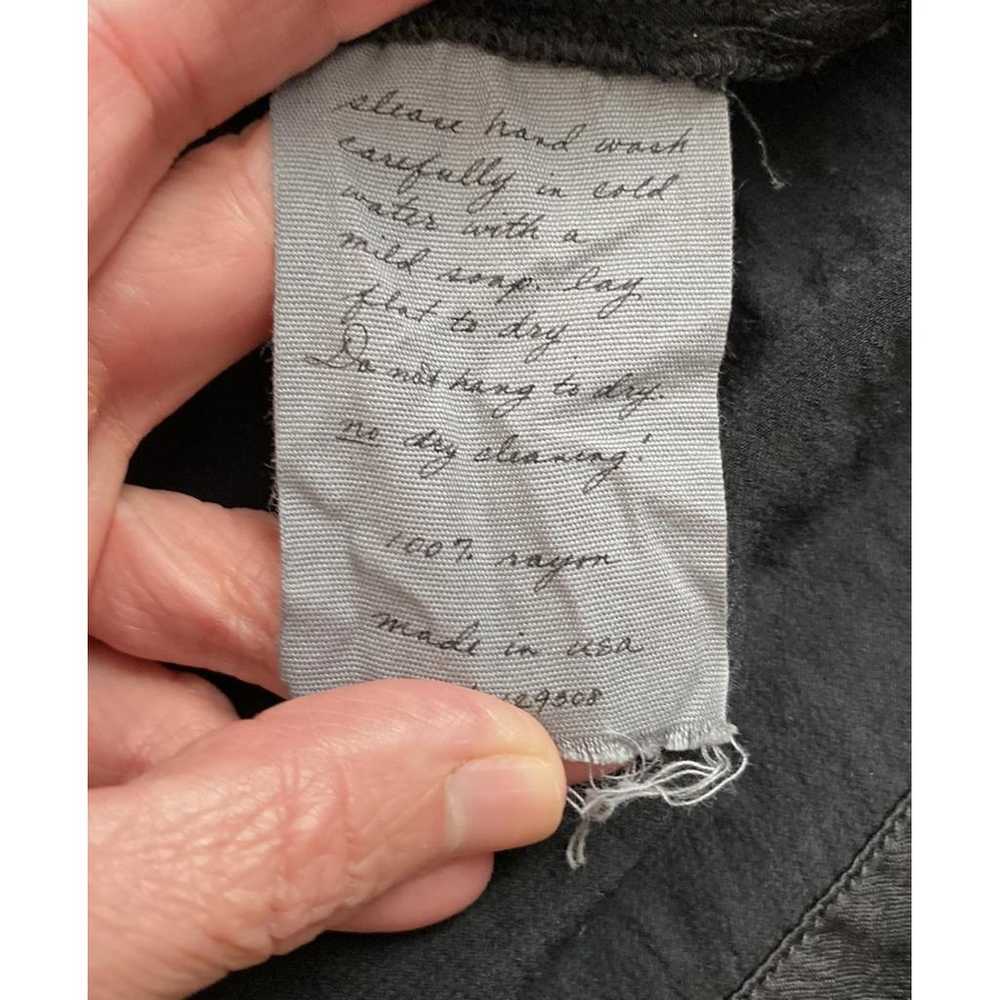 please hand wash
carefully in cold
water with a
mild soap. lay
flat to dry
Do not hang to dry.
no dry cleaning!
100% rayon
made in usa
29308